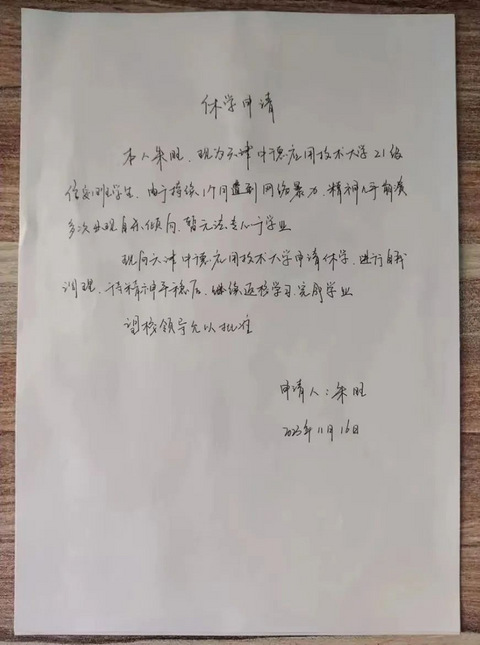 休学申请
本人朱旺，现为天津中德应用技术大学21级
信安1班学生，由于持续1个月遭到网络暴力，精神几乎崩溃
多次出现自杀倾向，暂无法专心于学业
现向天津中德应用技术大学申请休学，进行自我
调理，待精神平稳后，继续返校学习，完成学业
望校领导允以批准
申请人：朱旺
2023年11月16日